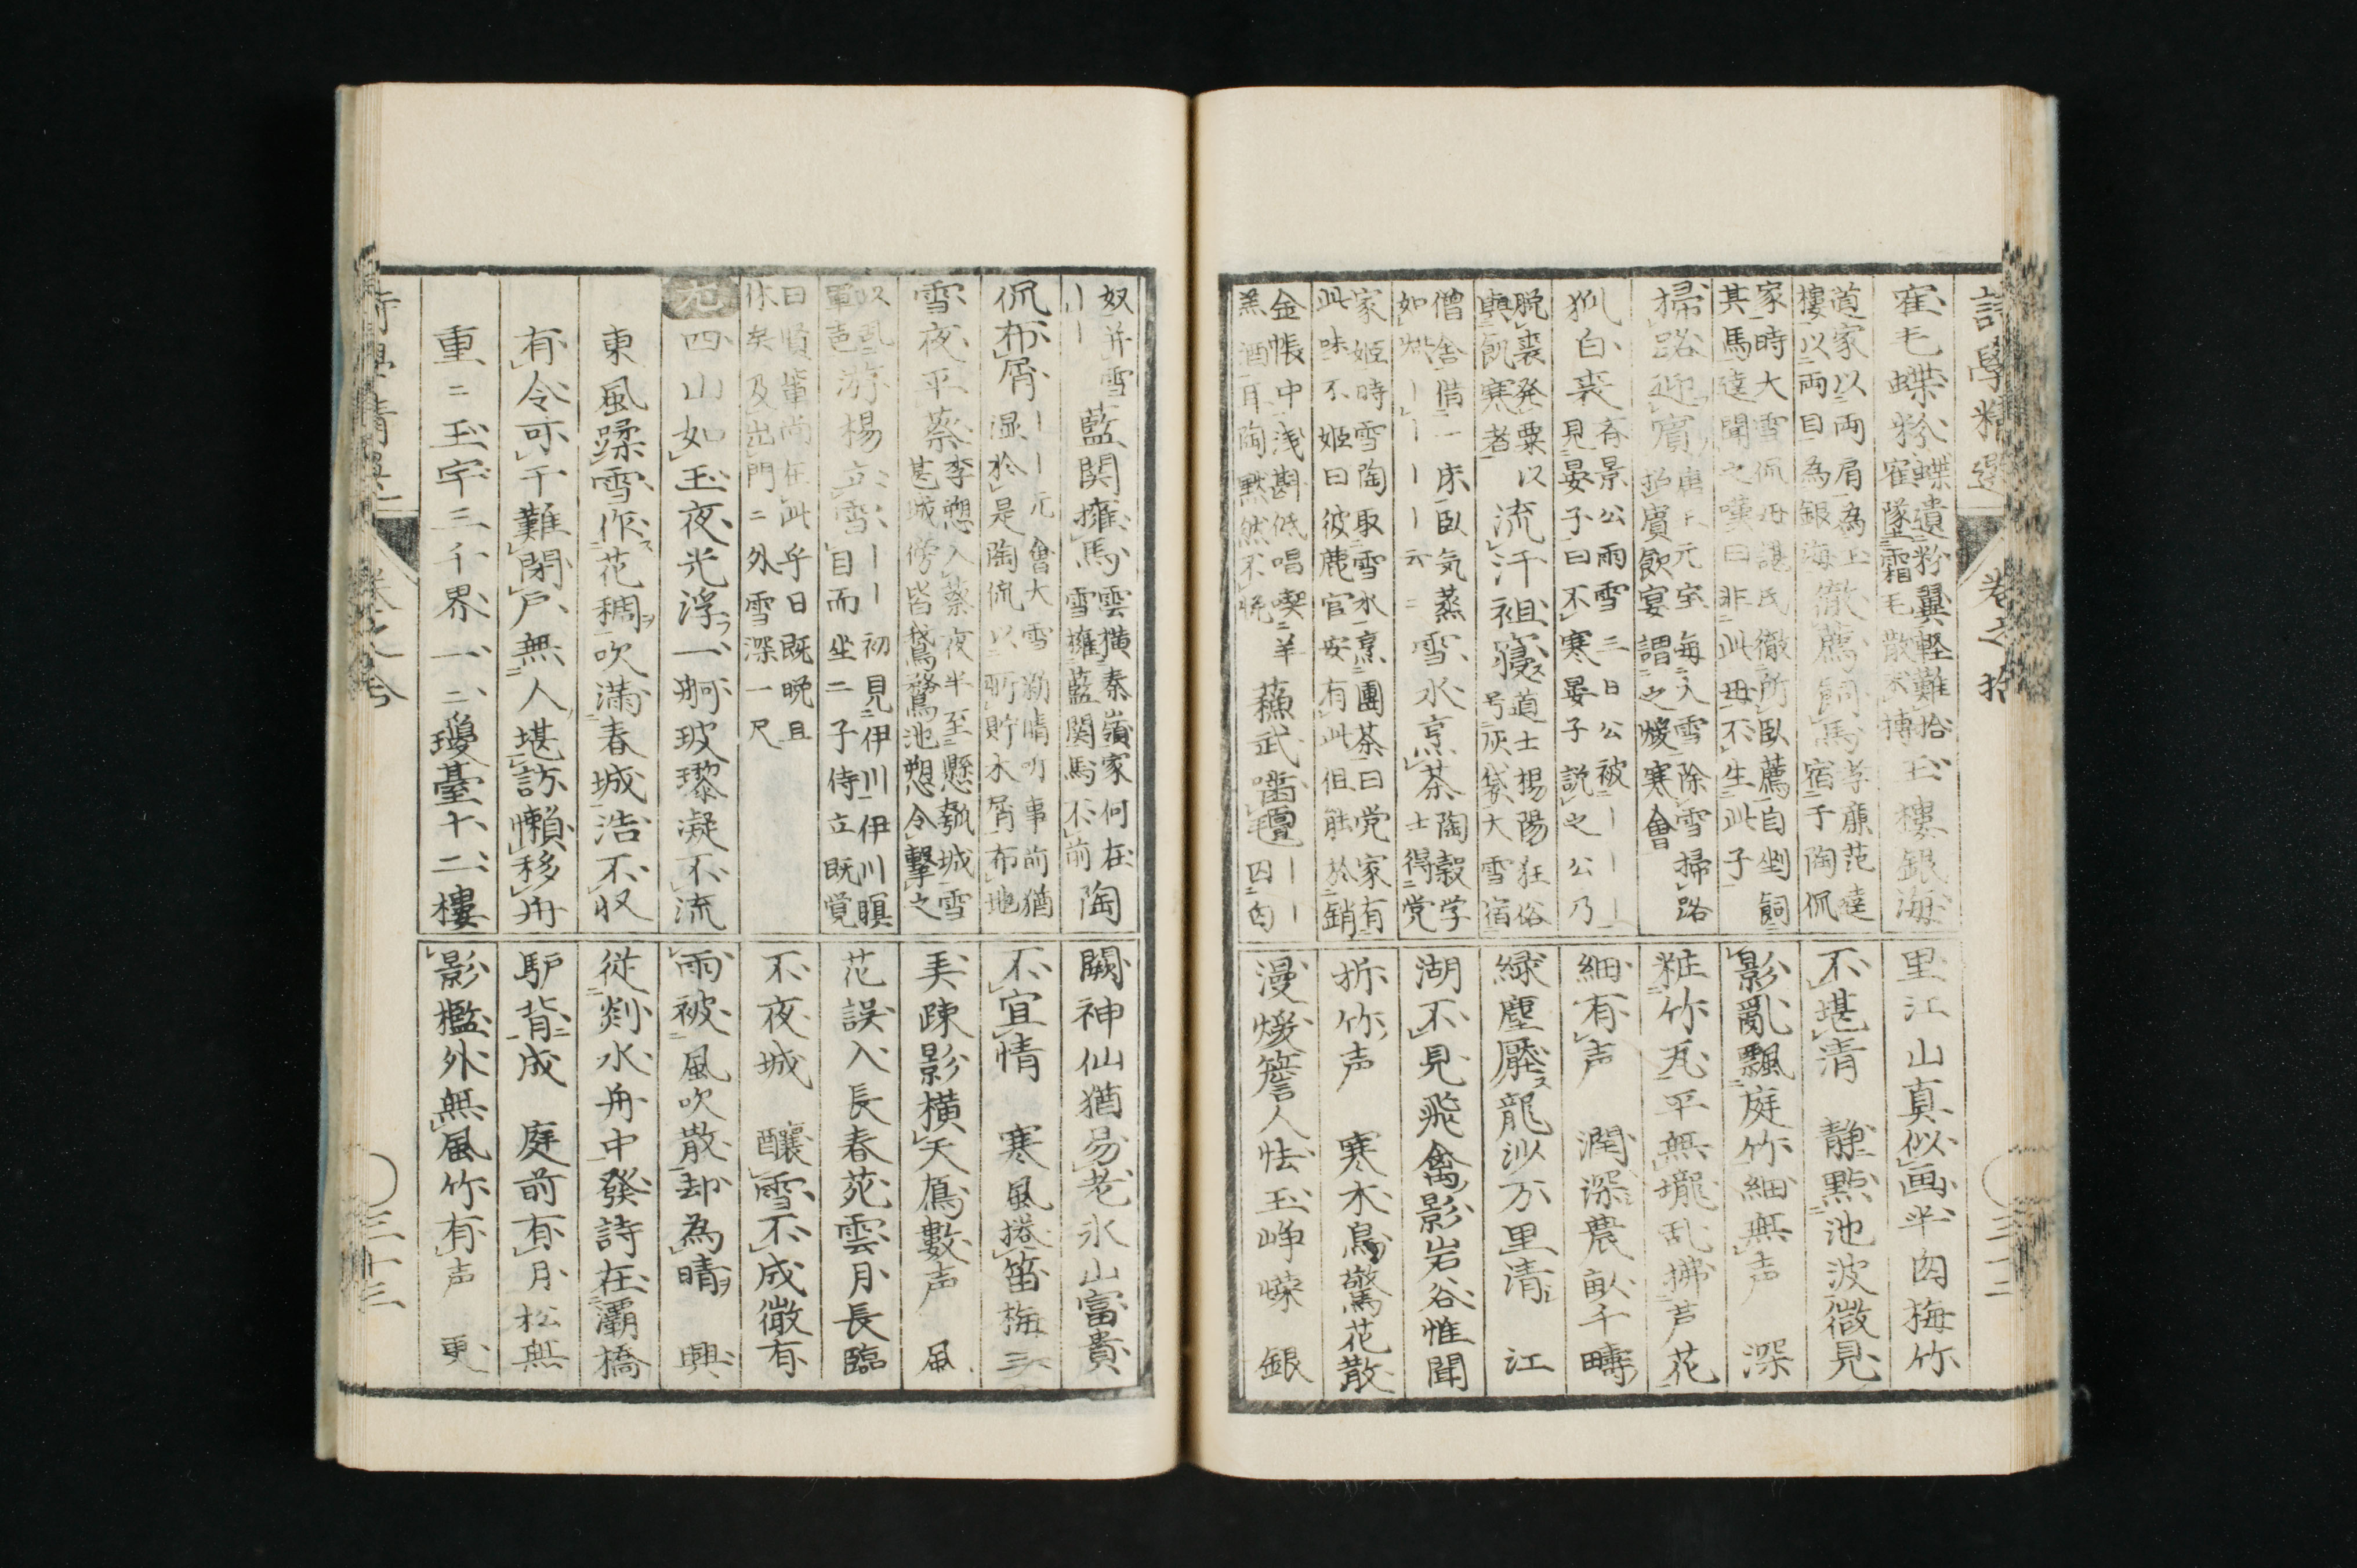 詩學精選 卷之拾 三十二
寉毛蝶粉 蝶遺粉翼軽難拾 寉墜霜毛散不摶 玉樓銀海
道家以両肩為玉樓以両目為銀海 徹薦飼馬 孝廉范逵宿于陶侃
家時大雪侃母諶氏徹所臥薦自剉飼其馬逵聞之嘆曰非此母不生此子
掃路迎賓 元宝毎大雪除雪掃路 賓飲宴謂之煖寒會
狐白裘 斉景公雨雪三日公被 見晏子曰不寒晏子説之公乃
脱裘発粟以與飢寒者 流汗袒寝 道士楊陽狂俗号灰袋大雪宿
僧舎借一床臥気蒸如炊 云云 雪水烹茶 陶穀学士得党
家姫時雪陶取雪水烹團茶曰党家有此味不姫曰彼麁官安有此但能於銷
金帳中浅斟低唱喫羊羔酒耳陶黙然不 蘓武囓氊 囚匈
里江山真似画半囱梅竹
不堪清 靜點池波微見
影亂飄庭竹細無声 深
粧竹瓦平無壠乱拂芦花
細有声 潤深農畝千疇
緑塵壓龍沙万里清 江
湖不見飛禽影岩谷惟聞
折竹声 寒木鳥驚花散
漫煖簷人怯玉崢嶸 銀
奴并雪 藍関擁馬 雲横秦嶺家何在 雪擁藍関馬不前 陶
侃布屑 元會大雪 晴 事前猶湿於是陶侃以所貯木屑布地
雪夜平蔡 李愬入蔡夜半至懸瓠城雪甚城傍皆鵞鶩池愬令撃之
以乱軍声 游楊立雪 初見伊川伊川瞑目而坐二子侍立既覚
曰賢輩尚在此乎日既晩且休矣及出門二外雪深一尺
四山如玉夜光浮一舸玻瓈凝不流
東風蹂雪作花稠吹満春城浩不収
有令亦干難閉戸無人堪訪懶移舟
重二玉宇三千界一二瓊臺十二樓
闕神仙猶易老氷山富貴
不宜情 寒風捲笛梅三
弄踈影横天鴈數声 風
花誤入長春苑雲月長臨
不夜城 釀雪不成微有
雨被風吹散却為晴 興
従剡水舟中發詩在灞橋
馿背成 庭前有月松無
影檻外無風竹有声 更
三十三